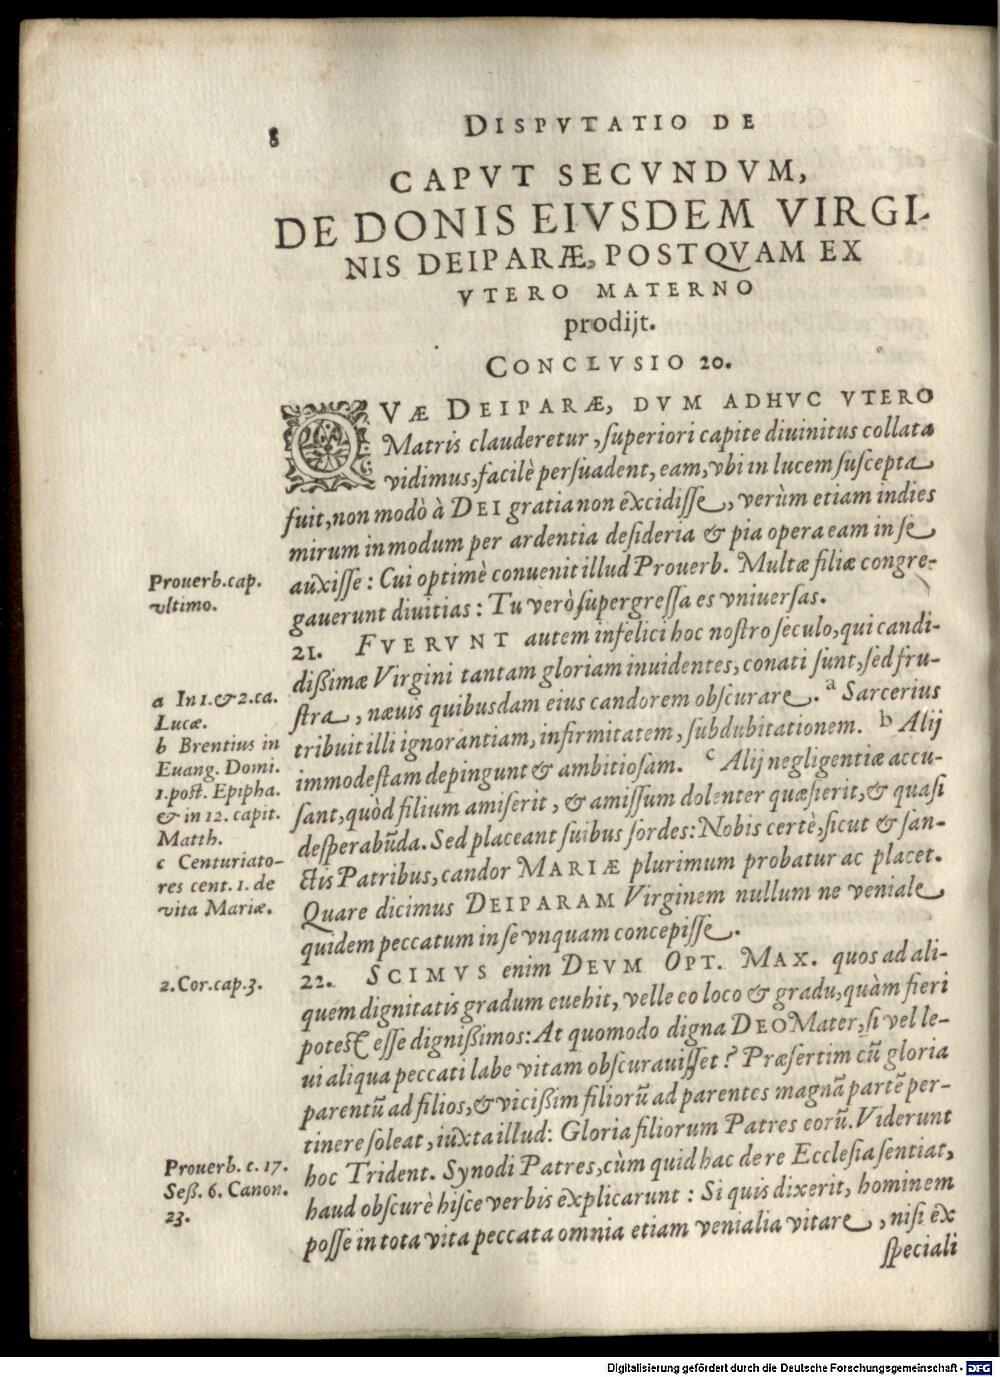 8
DISPVTATIO DE
CAPVT SECVNDVM,
DE DONIS EIVSDEM VIRGI-
NIS DEIPARÆ, POSTQVAM EX
VTERO MATERNO
prodijt.
CONCLVSIO 20.
QVÆ DEIPARÆ, DVM ADHVC VTERO
Matris clauderetur, ſuperiori capite diuinitus collata
vidimus, facilè perſuadent, eam, vbi in lucem ſuſcepta
fuit, non modò à DEI gratia non excidiſſe, verùm etiam indies
mirum in modum per ardentia deſideria & pia opera eam in ſe
auxiſſe: Cui optimè conuenit illud Prouerb. Multæ filiæ congre-
gauerunt diuitias: Tu verò ſupergreſſa es vniuerſas.
Prouerb.cap.
vltimo.
21. FVERVNT autem infelici hoc noſtro ſeculo, qui candi-
dißimæ Virgini tantam gloriam inuidentes, conati ſunt, ſed fru-
ſtra, næuis quibusdam eius candorem obſcurare. a Sarcerius
tribuit illi ignorantiam, infirmitatem, ſubdubitationem. b Alij
immodeſtam depingunt & ambitioſam. c Alij negligentiæ accu-
ſant, quòd filium amiſerit, & amiſſum dolenter quæſierit, & quaſi
deſperabūda. Sed placeant ſuibus ſordes: Nobis certè, ſicut & ſan-
ctis Patribus, candor MARIÆ plurimum probatur ac placet.
Quare dicimus DEIPARAM Virginem nullum ne veniale
quidem peccatum in ſe vnquam concepiſſe.
a In 1. & 2. ca.
Lucæ.
b Brentius in
Euang. Domi.
1. poſt. Epipha.
& in 12. capit.
Matth.
c Centuriato-
res cent. 1. de
vita Mariæ.
22. SCIMVS enim DEVM OPT. MAX. quos ad ali-
quem dignitatis gradum euehit, velle eo loco & gradu, quàm fieri
potest, eſſe dignißimos: At quomodo digna DEO Mater, ſi vel le-
ui aliqua peccati labe vitam obſcurauiſſet? Præſertim cū gloria
parentū ad filios, & vicißim filiorū ad parentes magnā partē per-
tinere ſoleat, iuxta illud: Gloria filiorum Patres eorū. Viderunt
hoc Trident. Synodi Patres, cùm quid hac de re Eccleſia ſentiat,
haud obſcurè hiſce verbis explicarunt: Si quis dixerit, hominem
poſſe in tota vita peccata omnia etiam venialia vitare, niſi ex
ſpeciali
2.Cor.cap.3.
Prouerb. c. 17.
Seß. 6. Canon.
23.
Digitalisierung gefördert durch die Deutsche Forschungsgemeinschaft - DFG